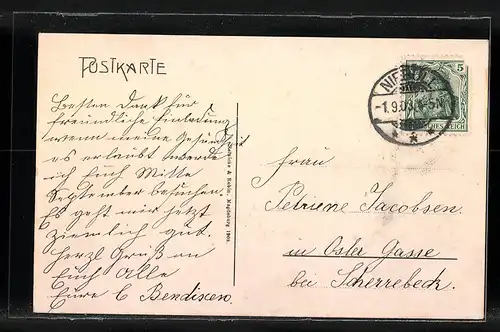 POSTKARTE
Besten Dank für
freundliche Einladung
wenn meine Gesundheit
es erlaubt werde
ich Euch Mitte
September besuchen.
Es geht mir jetzt
ziemlich gut.
Herzl Gruß an
Euch Alle
Eure C Bendixen.
& Kohn, Magdeburg 1909.
5
-1.9.09.4-5N
Frau
Petriene Jacobsen.
in Oster Gasse
bei Scherrebeck.